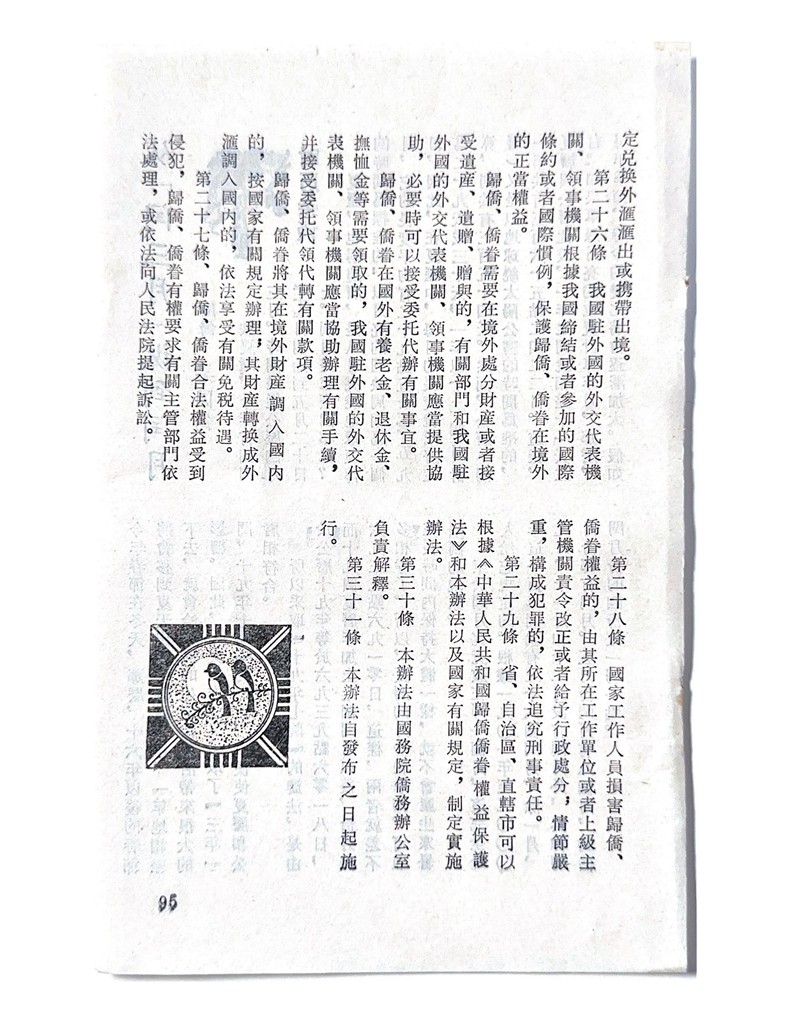 定兑换外滙滙出或携帶出境。
第二十六條　我國駐外國的外交代表機
關、領事機關根據我國締結或者參加的國際
條約或者國際慣例，保護歸僑、僑眷在境外
的正當權益。
歸僑、僑眷需要在境外處分財産或者接
受遺産、遺贈、贈與的，有關部門和我國駐
外國的外交代表機關、領事機關應當提供協
助，必要時可以接受委托代辦有關事宜。
歸僑、僑眷在國外有養老金、退休金、
撫恤金等需要領取的，我國駐外國的外交代
表機關、領事機關應當協助辦理有關手續，
并接受委托代領代轉有關款項。
歸僑、僑眷將其在境外財産調入國内
的，按國家有關規定辦理；其財産轉换成外
滙調入國内的，依法享受有關免税待遇。
第二十七條、歸僑、僑眷合法權益受到
侵犯，歸僑、僑眷有權要求有關主管部門依
法處理，或依法向人民法院提起訴訟。
第二十八條　國家工作人員損害歸僑、
僑眷權益的，由其所在工作單位或者上級主
管機關責令改正或者給予行政處分；情節嚴
重，構成犯罪的，依法追究刑事責任。
第二十九條　省、自治區、直轄市可以
根據《中華人民共和國歸僑僑眷權益保護
法》和本辦法以及國家有關規定，制定實施
辦法。
第三十條　本辦法由國務院僑務辦公室
負責解釋。
第三十一條　本辦法自發布之日起施
行。
95